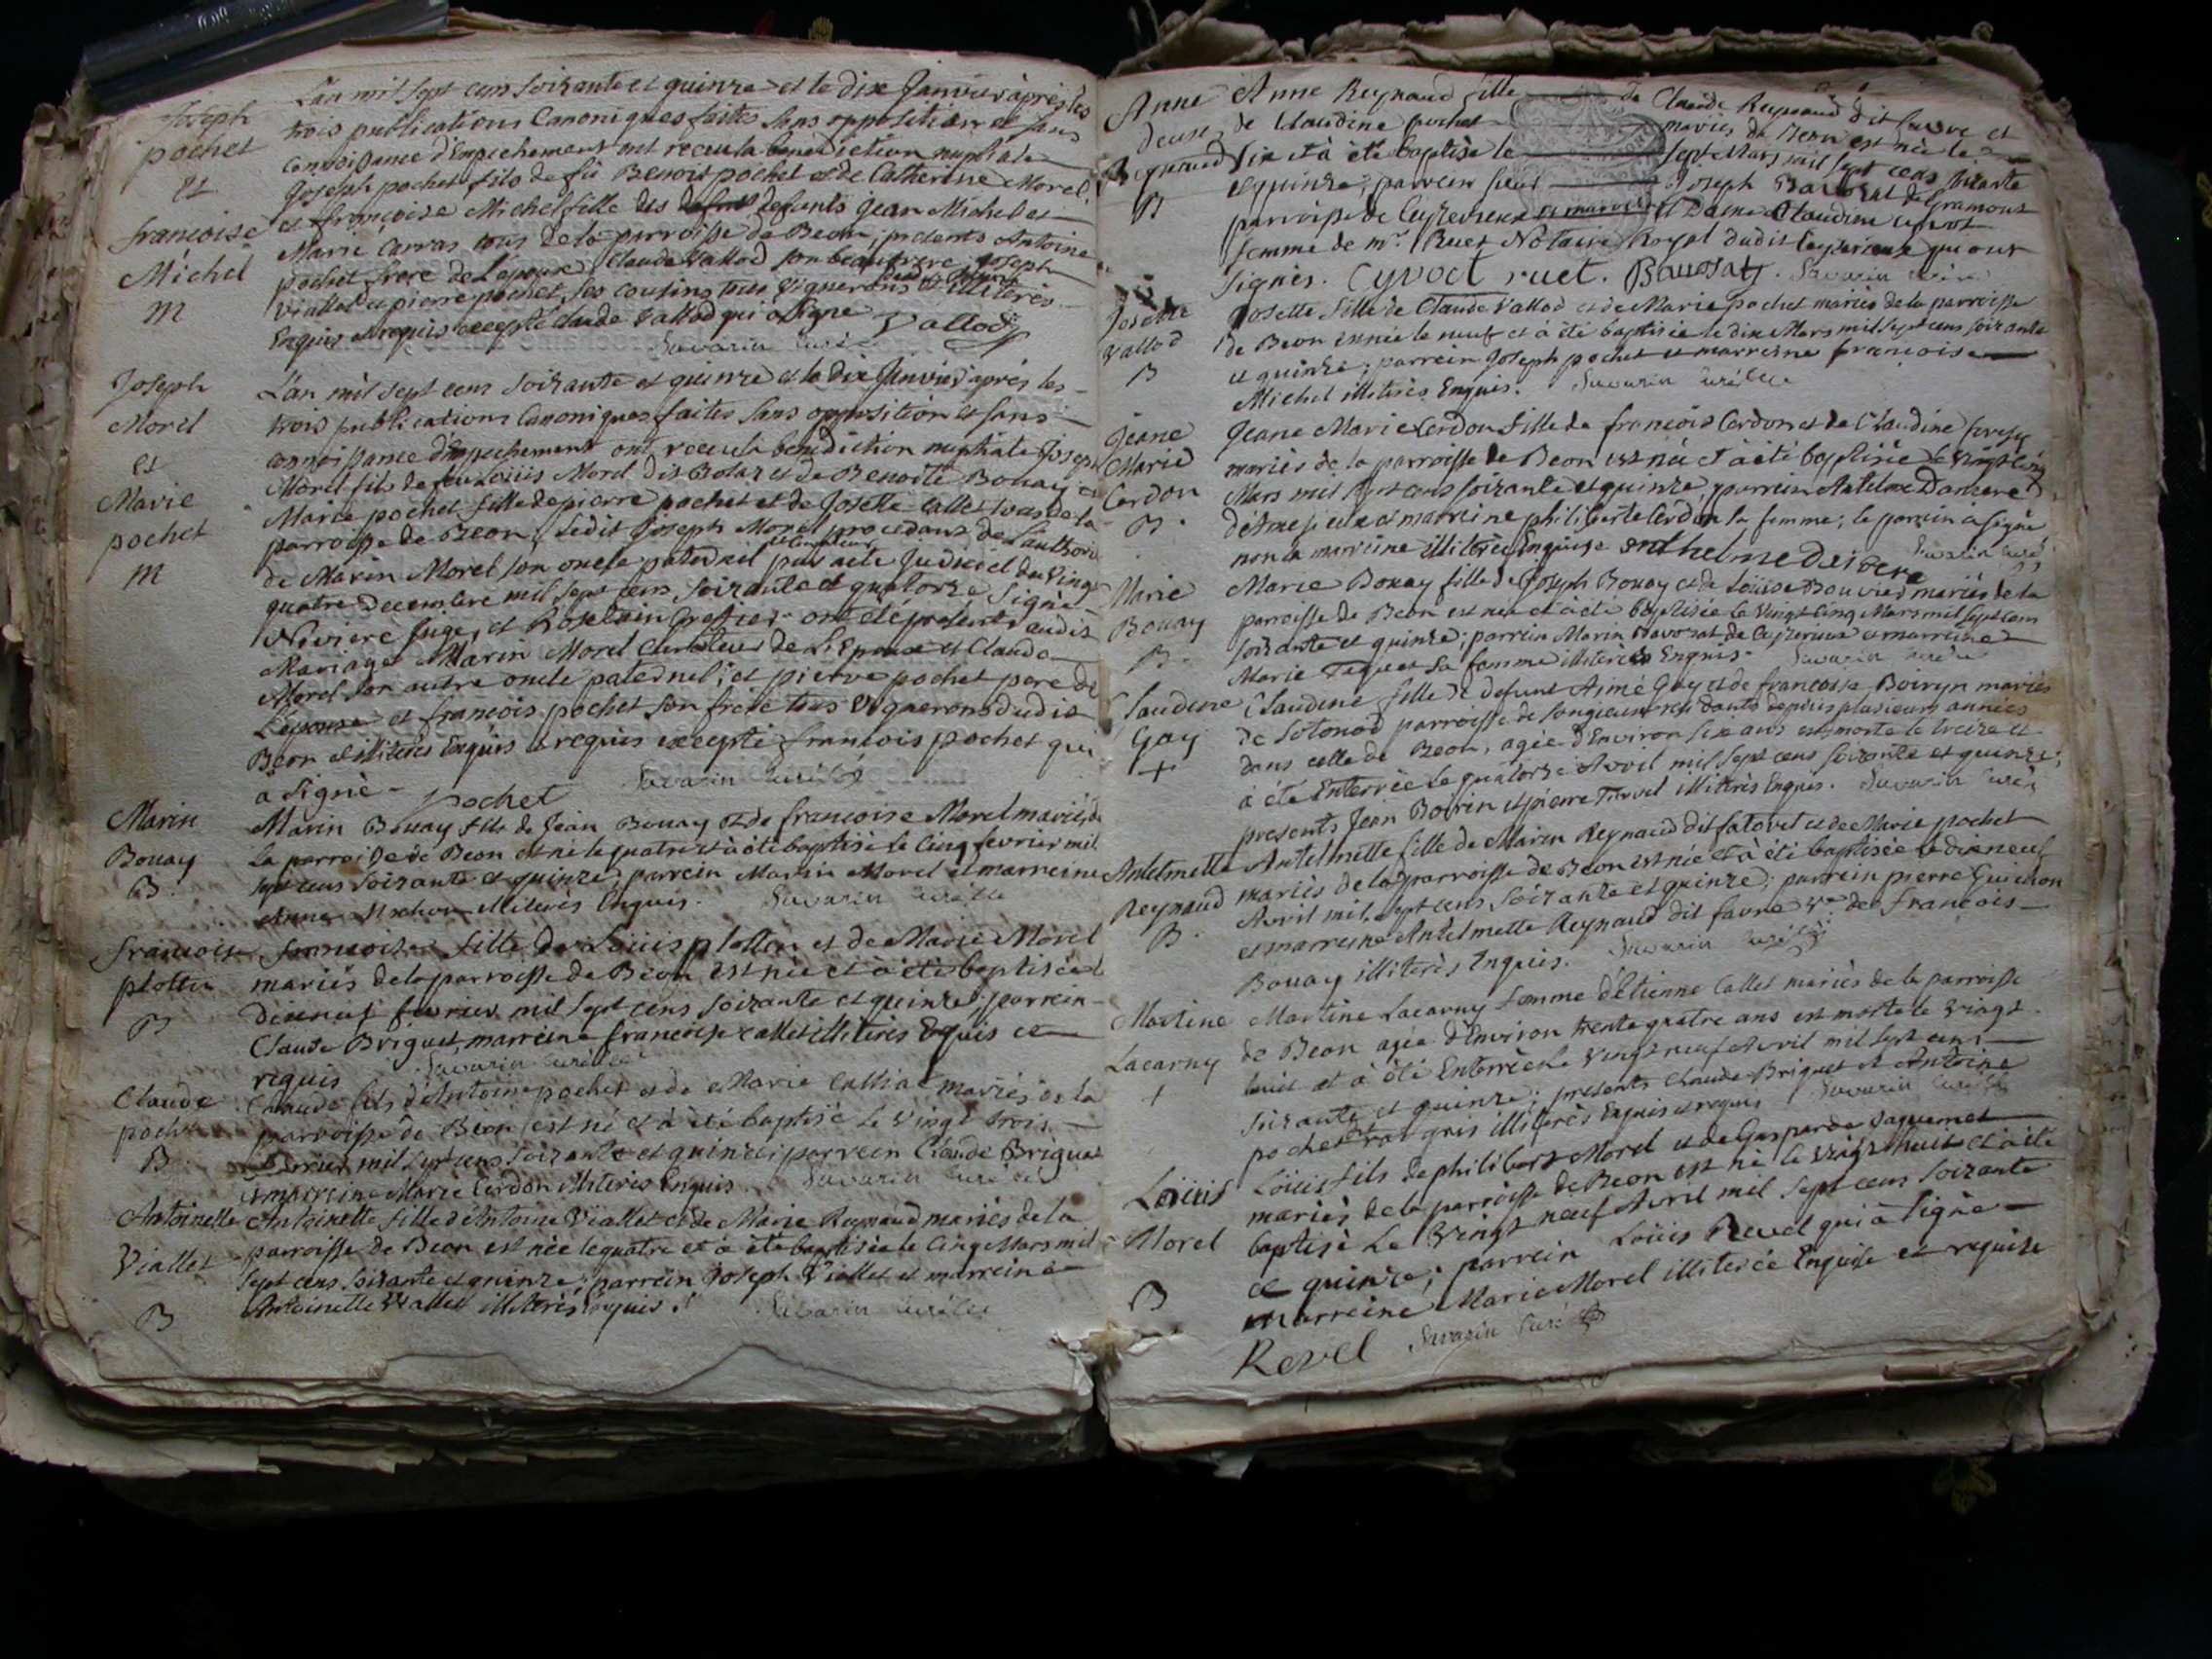 Joseph
pochet
et
francoise
Michel
M
L'an mil sept cens soixante et quinze et le dix Janvier après les
trois publications Canoniques faites sans opposition et sans
connoissance d'Empechement ont receu la benediction nuptiale
Joseph pochet fils de fû Benoit pochet et de Catherine Morel,
et francoise Michel fille des defunts Jean Michel et
Marie Carras tous de la parroisse de Beon; presents Antoine
pochet frere de L'epoux, Claude Vallod son beaufrere, Joseph
Viallet et pierre pochet, ses cousins tous vignerons illiterés
Enquis et requis excepté claude Vallod qui a signé
Vallod
Savarin curé
Joseph
Morel
et
Marie
pochet
M
L'an mil sept cens soixante et quinze et le dix Janvier après les
trois publications Canoniques faites sans opposition et sans
connoissance d'Empechement ont receu la benediction nuptiale Joseph
Morel fils de feu Loüis Morel dit Bolaz et de Benoite Bouay et
Marie pochet fille de pierre pochet et de Josette Callet tous de la
parroisse de Beon, Ledit Joseph Morel procedant de L'authorité
de Marin Morel son oncle paternel et curateur par acte Judiciel du Vingt
quatre decembre mil sept cens soixante et quatorze signé
Niviere Juge, et Roselain Greffier ont été presents audit
Mariage Marin Morel Curateur de L'Epoux et Claude
Morel son autre oncle paternel; et pierre pochet pere de
L'epouse et francois pochet son frere tous Vignerons dudit
Beon et illiterés Enquis et requis excepté francois pochet qui
a signé -
pochet
Savarin curé
Marin
Bouay
B.
Marin Bouay fils de Jean Bouay et de francoise Morel mariés de
la parroisse de Beon est né le quatre et à été baptisé le Cinq fevrier mil
sept cens soixante et quinze, parrein Marin Morel et marreine
Anne Michon illiterés Enquis. Savarin curé
francoise
plottu
B
francoise fille de Loüis plottu et de Marie Morel
mariés de la parroisse de Beon est née et à été baptisée le
dixneuf fevrier mil sept cens soixante et quinze; parrein
Claude Briguet, marreine francoise callet illiterés Enquis et
requis Savarin curé
Claude
pochet
B
Claude fils d'Antoine pochet et de Marie Calliat mariés de la
parroisse de Beon est né et à été baptisé le Vingt trois
fevrier mil sept cens soixante et quinze; parrein Claude Briguet
et marreine Marie Cerdon illiterés Enquis Savarin curé
Antoinette
Viallet
B
Antoinette fille d'Antoine Viallet et de Marie Reynaud mariés de la
parroisse de Beon est née le quatre et à été baptisée le Cinq Mars mil
sept cens soixante et quinze; parrein Joseph Viallet et marreine
Antoinette Viallet illiterés Enquis. Savarin curé
Anne
Reynaud
B
Anne Reynaud fille de Claude Reynaud dit favre et
de Claudine pochet mariés de Beon est née le
Six et à été baptisée le sept Mars mil sept cens soixante
et quinze, parrein Joseph Bavosat de gramont
parroisse de Ceyzerieux et Dame Claudine cyvoct
femme de mr. Ruet Notaire Royal dudit Ceyzerieux qui ont
signés. Cyvoct ruet. Bavosat. Savarin curé
Josette
Vallod
B
Josette fille de Claude Vallod et de Marie pochet mariés de la parroisse
de Beon est née le neuf et à été baptisée le dix Mars mil sept cens soixante
et quinze; parrein Joseph pochet et marreine francoise
Michel illiterés Enquis. Savarin curé
Jeane
Marie
Cerdon
B.
Jeane Marie Cerdon fille de francois Cerdon et de Claudine
mariés de la parroisse de Beon est née et à été baptisée le vingt cinq
Mars mil sept cens soixante et quinze, parrein Antelme
et marreine philiberte Cerdon sa femme; le parrein a signé
non la marreine illiterée Enquise Savarin curé
Marie
Bouay
B.
Marie Bouay fille de Joseph Bouay et de Loüise Bouvier mariés de la
parroisse de Beon est née et à été baptisée le Vingt Cinq Mars mil sept cens
soixante et quinze; parrein Marin Bavosat de Ceyzerieux et marreine
Marie Taquet sa femme illiterés Enquis. Savarin curé
Claudine
Gay
+
Claudine fille de defunt Aimé Gay et de francoise Boiryn mariés
de Sotonod parroisse de Songieux residants depuis plusieurs années
dans celle de Beon, agée d'Environ six ans est morte le treize et
à été Enterrée le quatorze Avril mil sept cens soixante et quinze;
presents Jean Boirin et pierre Travel illiterés Enquis. Savarin curé
Antelmette
Reynaud
B.
Antelmette fille de Marin Reynaud dit fatoret et de Marie pochet
mariés de la parroisse de Beon est née et à été baptisée le dixneuf
Avril mil sept cens soixante et quinze; parrein pierre Guichon
et marreine Antelmette Reynaud dit favre ve. de francois
Bouay illiterés Enquis. Savarin curé
Martine
Lacarny
+
Martine Lacarny femme d'Etienne Callet mariés de la parroisse
de Beon agée d'Environ trente quatre ans est morte le vingt
huit et à été Enterrée le Vingt neuf Avril mil sept cens
soixante et quinze; presents Claude Briguet et Antoine
pochet illiterés Enquis et requis Savarin curé
Loüis
Morel
B
Loüis fils de philibert Morel et de Gasparde Jaquemet
mariés de la parroisse de Beon est né le vingt huit et à été
baptisé Le Vingt neuf Avril mil sept cens soixante
et quinze; parrein Loüis Revel qui à signé
marreine Marie Morel illiterée Enquise et requise
Revel Savarin curé